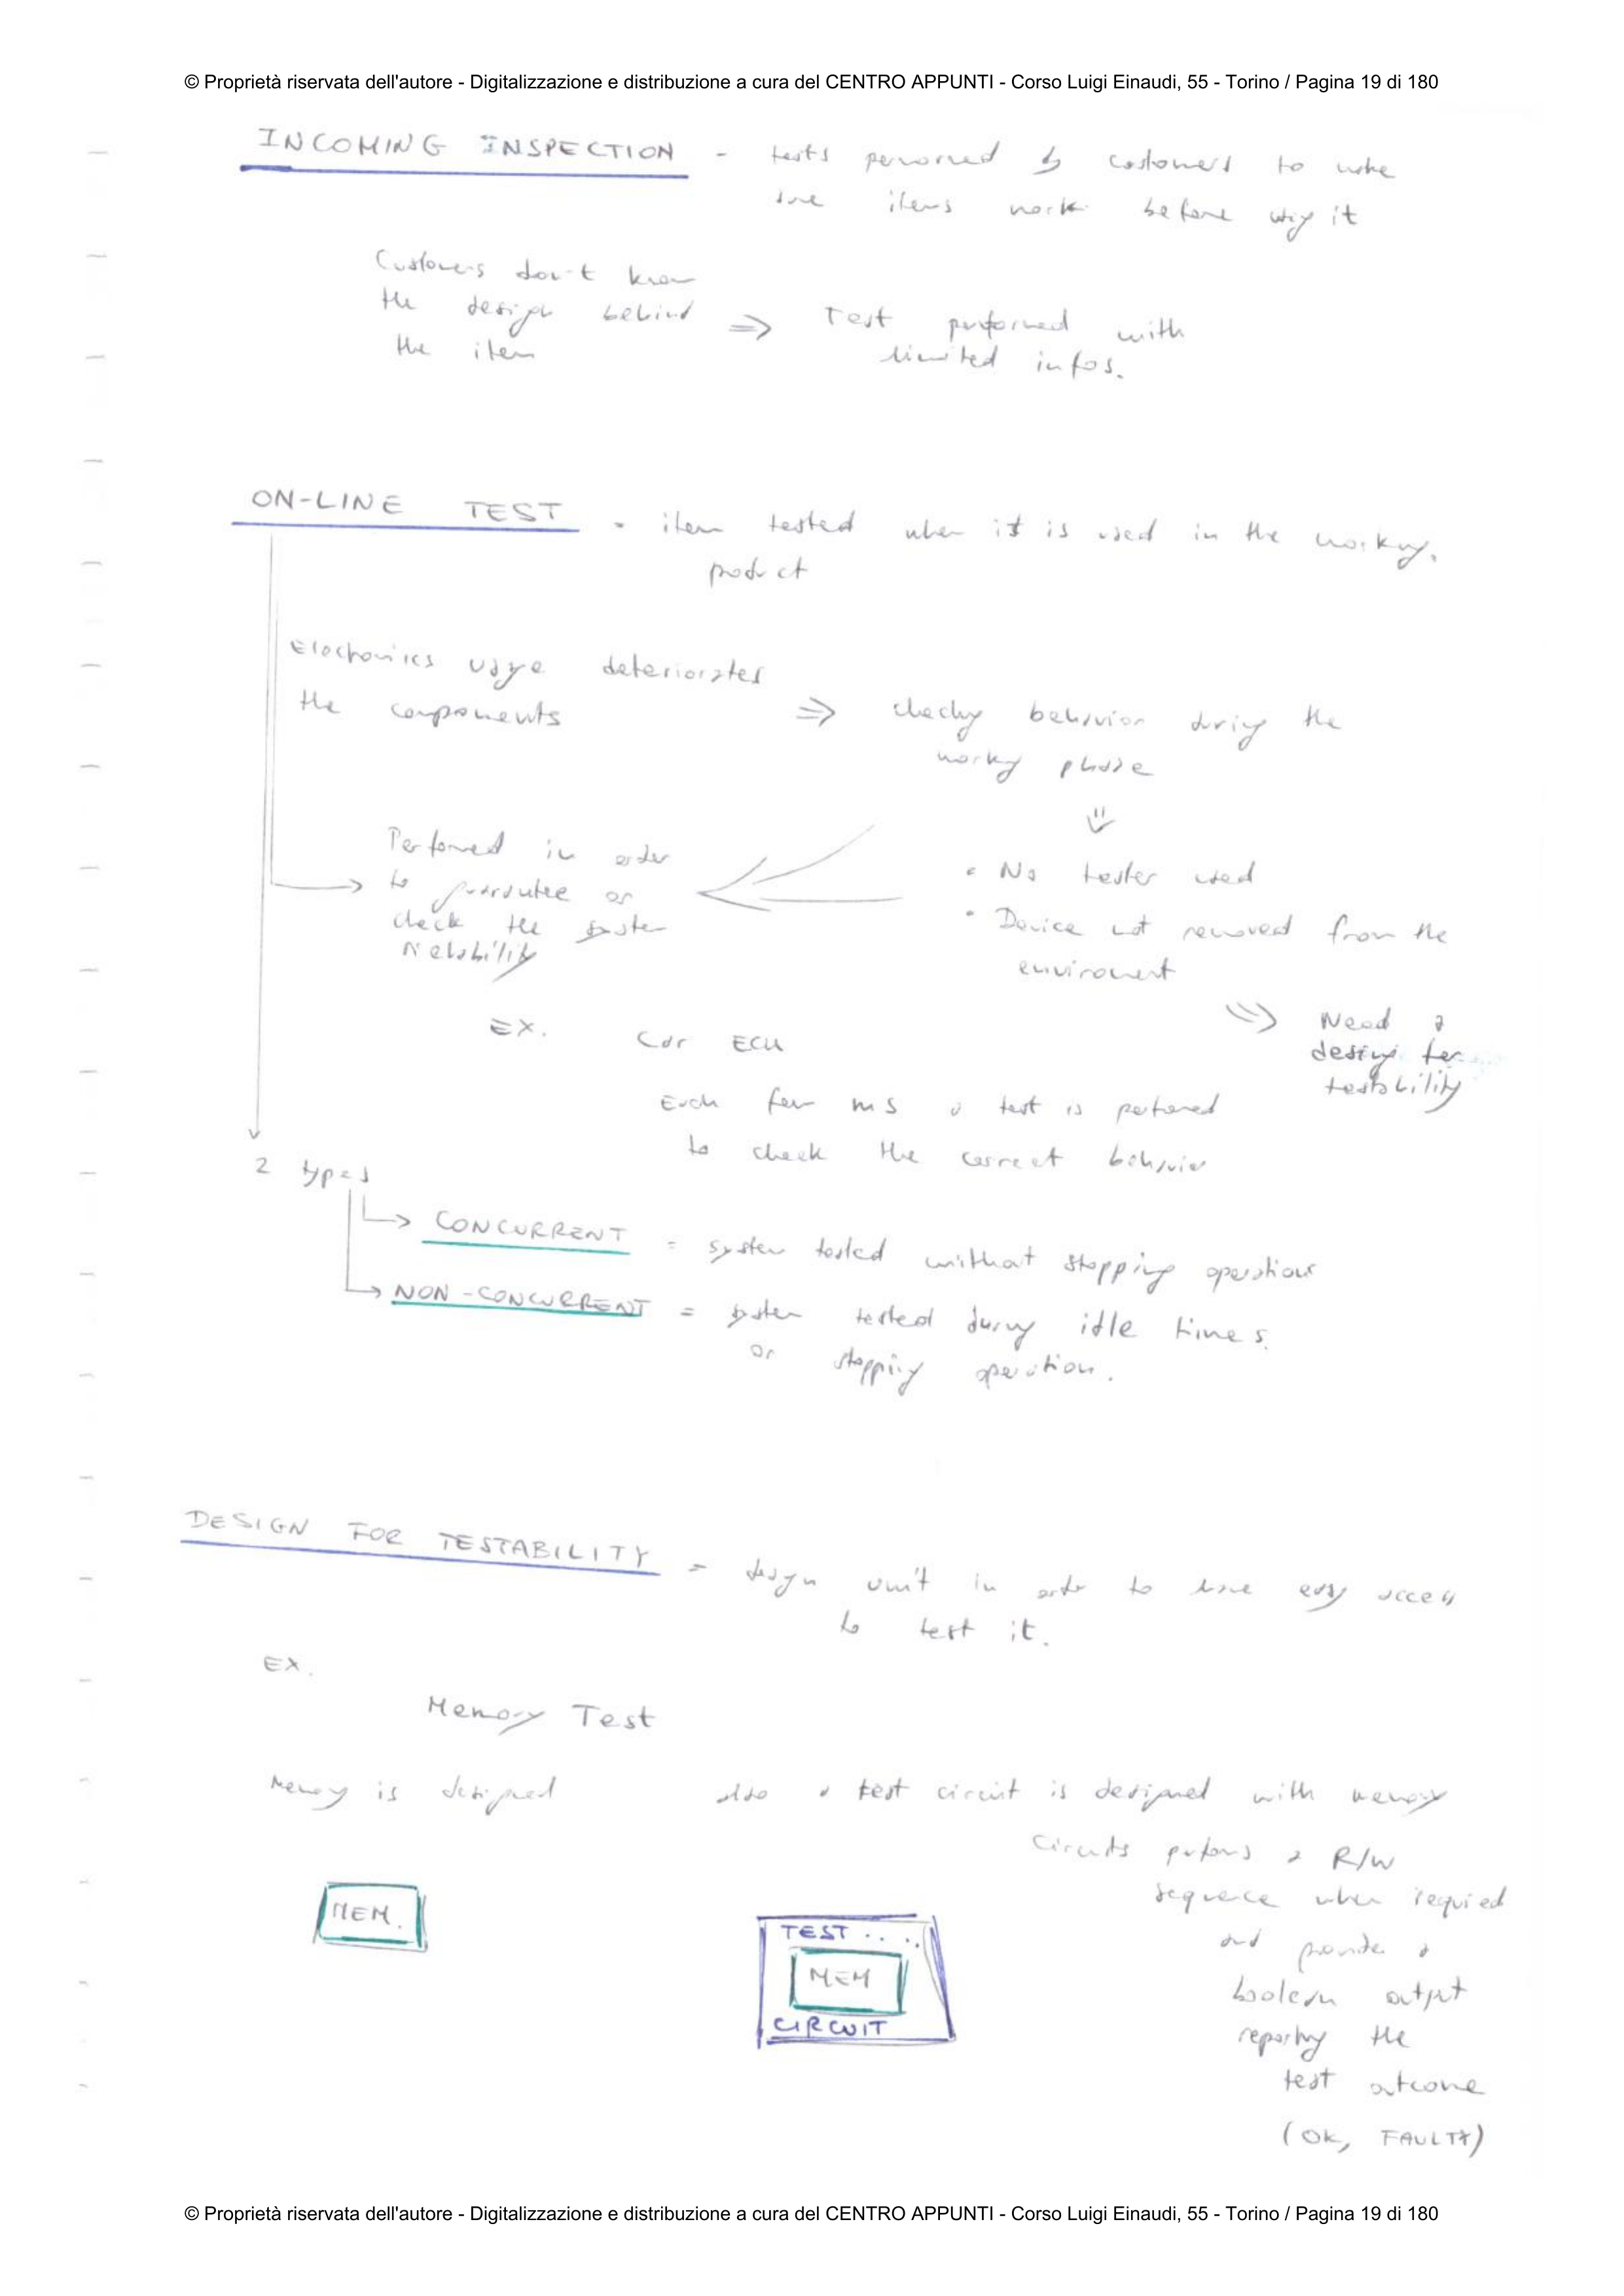 © Proprietà riservata dell'autore - Digitalizzazione e distribuzione a cura del CENTRO APPUNTI - Corso Luigi Einaudi, 55 - Torino / Pagina 19 di 180
INCOMING INSPECTION - tests perormed by costomers to make
sure items work before it
Customers don't know
the design behind
the item
=> Test performed with
limited infos.
ON-LINE TEST = item tested when it is used in the working
product
Electronics usage deteriorates
the components
=> checking behavior during the
working phase
Performed in order
to guarantee or
check the system
reliability
• No tester used
• Device not removed from the
enviroment
=> Need a
design for
testability
EX. Car ECU
Each few ms a test is performed
to check the correct behavior
2 types
CONCURRENT = system tested without stopping operations
NON-CONCURRENT = system tested during idle times
or stopping operation.
DESIGN FOR TESTABILITY = design unit in order to have easy access
to test it.
EX.
Memory Test
Memory is designed
also a test circuit is designed with memory
Circuits performs a R/W
sequence when required
and provides a
boolean output
reporting the
test outcome
(OK, FAULTY)
MEM.
TEST ....
MEM
CIRCUIT
© Proprietà riservata dell'autore - Digitalizzazione e distribuzione a cura del CENTRO APPUNTI - Corso Luigi Einaudi, 55 - Torino / Pagina 19 di 180